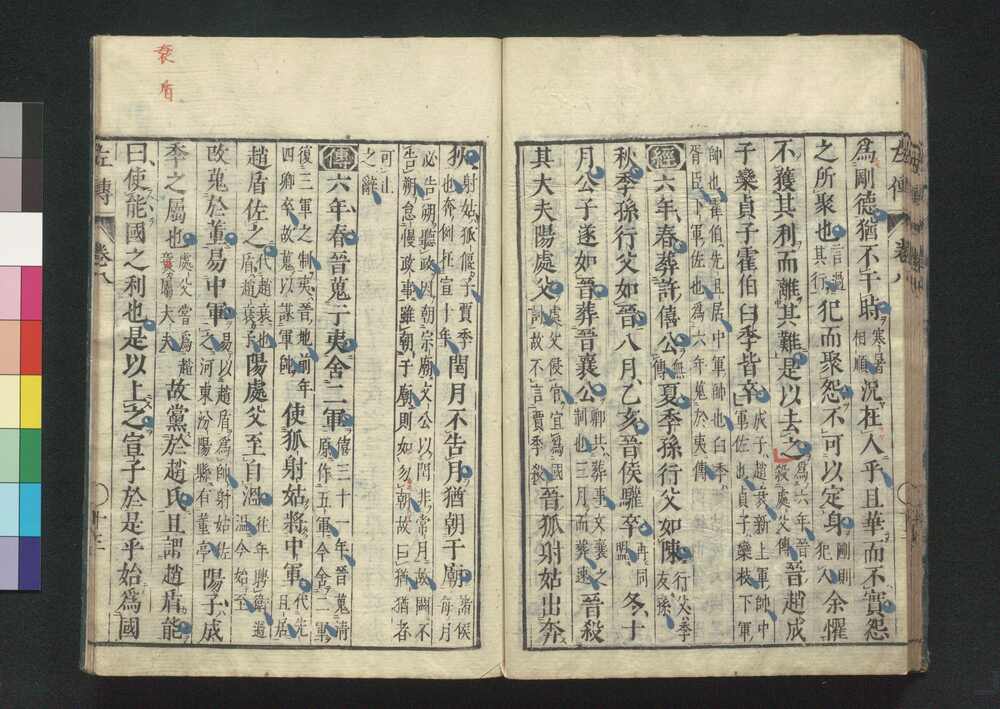 爲剛德猶不干時寒暑相順況在人乎且華而不實怨
之所聚也言過其行犯而聚怨不可以定身剛則犯人余懼
不獲其利而離其難是以去之爲六年晉殺處父傳晉趙成
子欒貞子霍伯臼季皆卒成子趙衰新上軍帥中軍佐也貞子欒枝下軍
帥也霍伯先且居中軍帥也臼季胥臣下軍佐也爲六年蒐於夷傳
經六年春葬許僖公無傳夏季孫行父如陳行父季友孫
秋季孫行父如晉八月乙亥晉侯驩卒再同盟冬十
月公子遂如晉葬晉襄公卿共葬事文襄之制也三月而葬速晉殺
其大夫陽處父處父侵官宜爲國討故不言賈季殺晉狐射姑出奔
狄射姑狐偃子賈季也奔例在宣十年閏月不告月猶朝于廟諸侯每月
必告朔聽政因朝宗廟文公以閏非常月故闕不告朔怠慢政事雖朝于廟則如勿朝故曰猶猶者
可止之辭
傳六年春晉蒐于夷舍二軍僖三十一年晉蒐清原作五軍今舍二軍
復三軍之制夷晉地前年四卿卒故蒐以謀軍帥使狐射姑將中軍代先且居
趙盾佐之代趙衰也盾趙衰子陽處父至自溫往年聘衛過溫今始至
改蒐於董易中軍易以趙盾爲帥射姑佐之河東汾陽縣有董亭陽子成
季之屬也處父嘗爲趙衰屬大夫故黨於趙氏且謂趙盾能
曰使能國之利也是以上之宣子於是乎始爲國
衰 盾
左傳 卷八